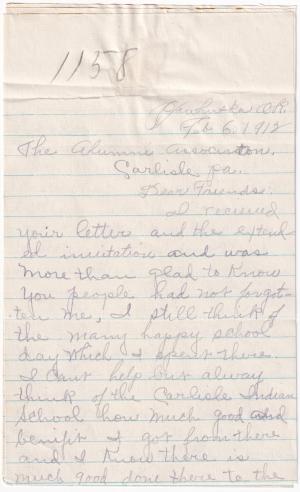 1158
Pawhuska Ok.
Feb 6. 1912
The Alumni Association,
Carlisle Pa.
Dear Friends:
I received
your letter and the extend
ed invitation and was
more than glad to know
you people had not forgot-
ten me, I still think of
the many happy school
day which I spent there
I can't help but alway
think of the Carlisle Indian
School how much good and
benifit I got from there
and I know there is
much good done there to the